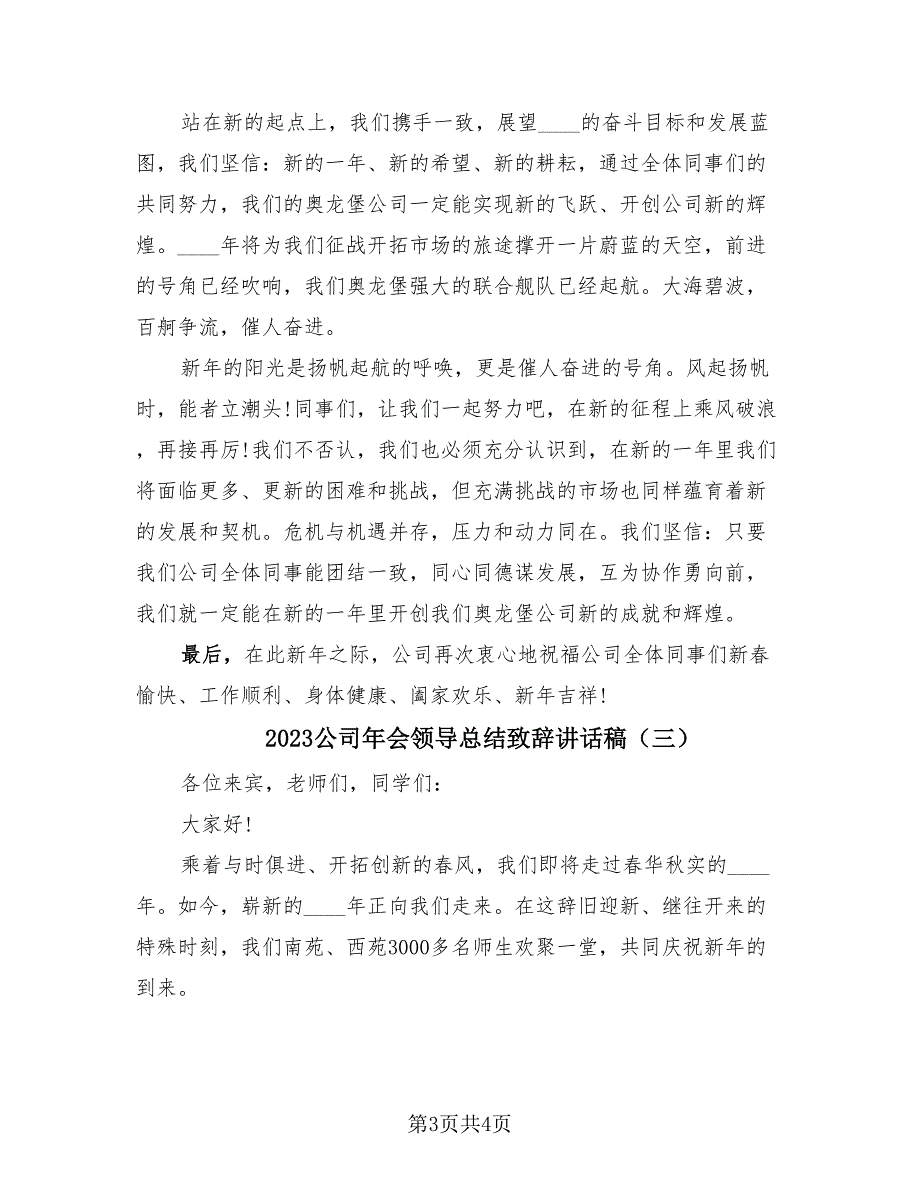 站在新的起点上，我们携手一致，展望____的奋斗目标和发展蓝
图，我们坚信：新的一年、新的希望、新的耕耘，通过全体同事们的
共同努力，我们的奥龙堡公司一定能实现新的飞跃、开创公司新的辉
煌。____年将为我们征战开拓市场的旅途撑开一片蔚蓝的天空，前进
的号角已经吹响，我们奥龙堡强大的联合舰队已经起航。大海碧波，
百舸争流，催人奋进。
新年的阳光是扬帆起航的呼唤，更是催人奋进的号角。风起扬帆
时，能者立潮头!同事们，让我们一起努力吧，在新的征程上乘风破浪
，再接再厉!我们不否认，我们也必须充分认识到，在新的一年里我们
将面临更多、更新的困难和挑战，但充满挑战的市场也同样蕴育着新
的发展和契机。危机与机遇并存，压力和动力同在。我们坚信：只要
我们公司全体同事能团结一致，同心同德谋发展，互为协作勇向前，
我们就一定能在新的一年里开创我们奥龙堡公司新的成就和辉煌。
最后，在此新年之际，公司再次衷心地祝福公司全体同事们新春
愉快、工作顺利、身体健康、阖家欢乐、新年吉祥!
2023公司年会领导总结致辞讲话稿（三）
各位来宾，老师们，同学们：
大家好!
乘着与时俱进、开拓创新的春风，我们即将走过春华秋实的____
年。如今，崭新的____年正向我们走来。在这辞旧迎新、继往开来的
特殊时刻，我们南苑、西苑3000多名师生欢聚一堂，共同庆祝新年的
到来。
第3页共4页